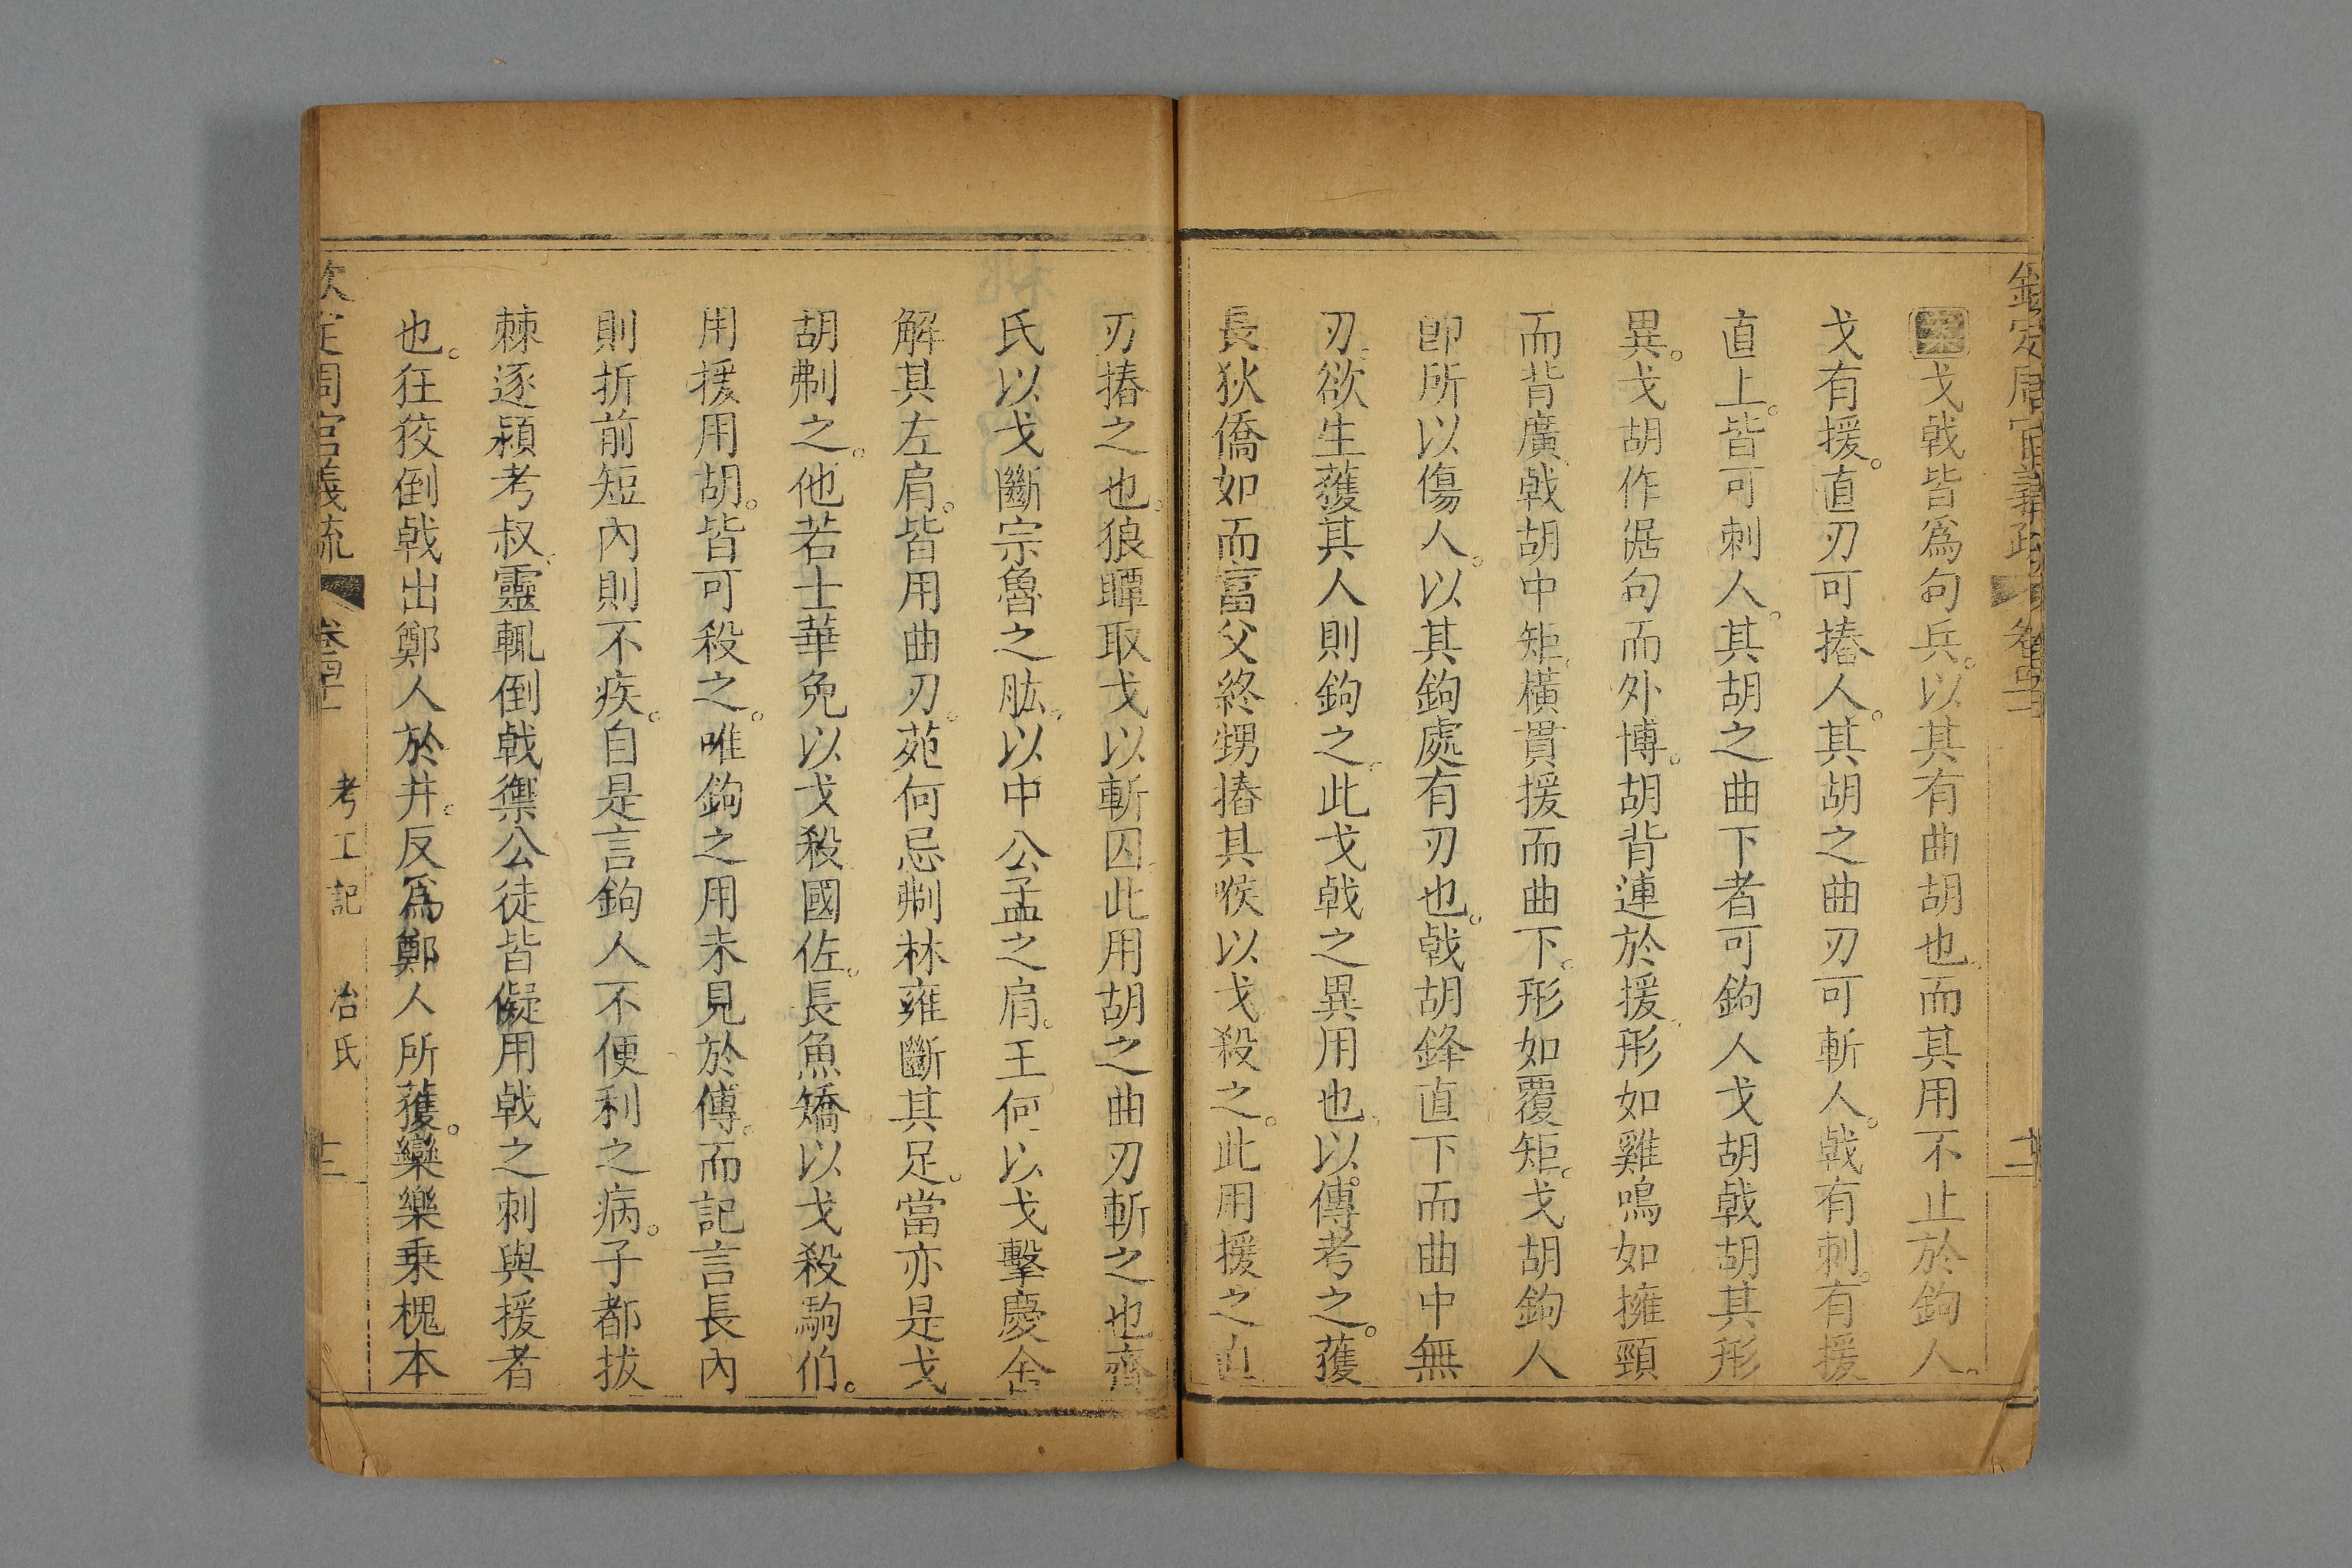 欽定周官義疏 卷四十 十二
案戈戟皆爲句兵。以其有曲胡也。而其用不止於鉤人。
戈有援。直刃可摏人。其胡之曲刃可斬人。戟有刺。有援
直上。皆可刺人。其胡之曲下者可鉤人戈胡戟胡其形
異。戈胡作倨句而外博。胡背連於援。形如雞鳴如擁頸
而背廣。戟胡中矩。橫貫援而曲下。形如覆矩。戈胡鉤人
卽所以傷人。以其鉤處有刃也。戟胡鋒直下而曲中無
刃。欲生獲其人則鉤之。此戈戟之異用也。以傳考之。獲
長狄僑如而富父終甥摏其喉以戈殺之。此用援之直
刃摏之也。狼瞫取戈以斬囚。此用胡之曲刃斬之也齊
氏以戈斷宗魯之肱。以中公孟之肩。王何以戈擊慶舍
解其左肩。皆用曲刃。苑何忌刜林雍斷其足。當亦是戈
胡刜之。他若士華免以戈殺國佐。長魚矯以戈殺駒伯。
用援用胡。皆可殺之。唯鉤之用未見於傳。而記言長內
則折前短內則不疾。自是言鉤人不便利之病。子都拔
棘逐潁考叔。靈輒倒戟禦公徒皆儗用戟之刺與援者
也。狂狡倒戟出鄭人於井。反爲鄭人所獲。欒樂乗槐本
欽定周官義疏 卷四十 考工記 冶氏 十二